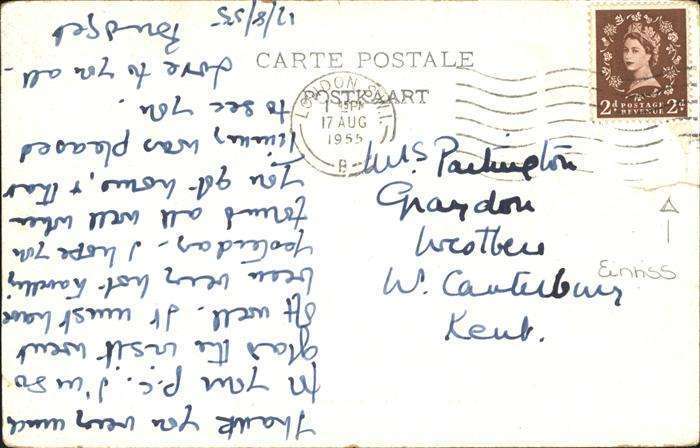 CARTE POSTALE
POSTKAART
LONDON S.W.1.
1 15PM
17 AUG
1955
B
2d POSTAGE REVENUE 2d
Mrs Partington
Graydon
W. Canterbury
Kent.
Thank you very much
for your p.c. I'm so
glad the visit went
off well. It must have
been very hot travelling
yesterday. I hope you
found all well when
you got home, & that
was pleased
to see you.
Love to you all -
Bridget
17/8/55